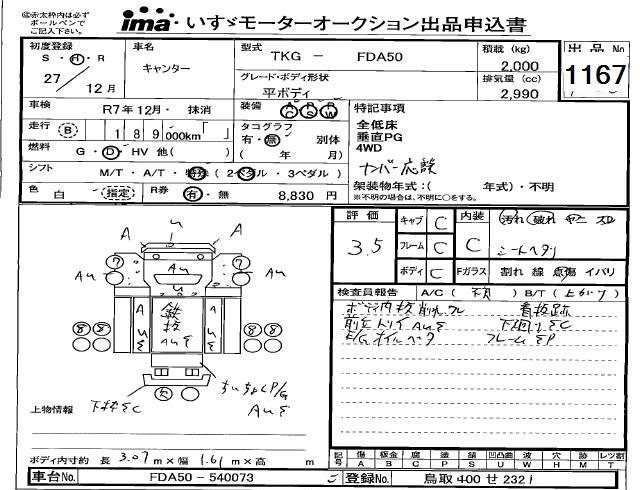 ◎赤太枠内は必ず
ボールペンで
ご記入下さい。
ima いすゞモーターオークション出品申込書
初度登録
S・H・R
27/12月
車名
キャンター
型式
TKG － FDA50
グレード・ボディ形状
平ボディ
積載 (kg)
2,000
排気量 (cc)
2,990
出品No
1167
車検 R7年12月・ 抹消
装備 AC PS PW
走行 B 189000km「 」
タコグラフ 有・無 別体
( 年 月)
燃料 G・D・HV 他( )
シフト M/T・A/T・特殊 (2ペダル・3ペダル)
色 白 指定 R券 有・無 8,830 円
特記事項
全低床
垂直PG
4WD
ナンバー応談
架装物年式：( 年式)・不明
※不明の場合は、不明に○をする。
評価 3.5
キャブ C
フレーム C
ボディ C
内装 C
汚れ 破れ ヤニ スレ
シートヘタリ
Fガラス 割れ 線 点傷 イバリ
検査員報告 A/C( ) B/T(上がり)
ボディ内板削れワレ 看板跡
AUE 下廻りEC
E/Gオイルベタ フレームEP
A U A
7 7
AU AU AU
A U E 鉄板 AUE A U E
8 8 8 8
欠
P/G
AUE
上物情報
ボディ内寸約 長 3.07m×幅 1.61m×高 m
記号 傷 A 板金 B 腐 C 塗 P 錆 S 凹凸曲 U 波 W 穴 H 折 M レツ割 T
車台No. FDA50-540073 5 登録No. 鳥取400せ2321